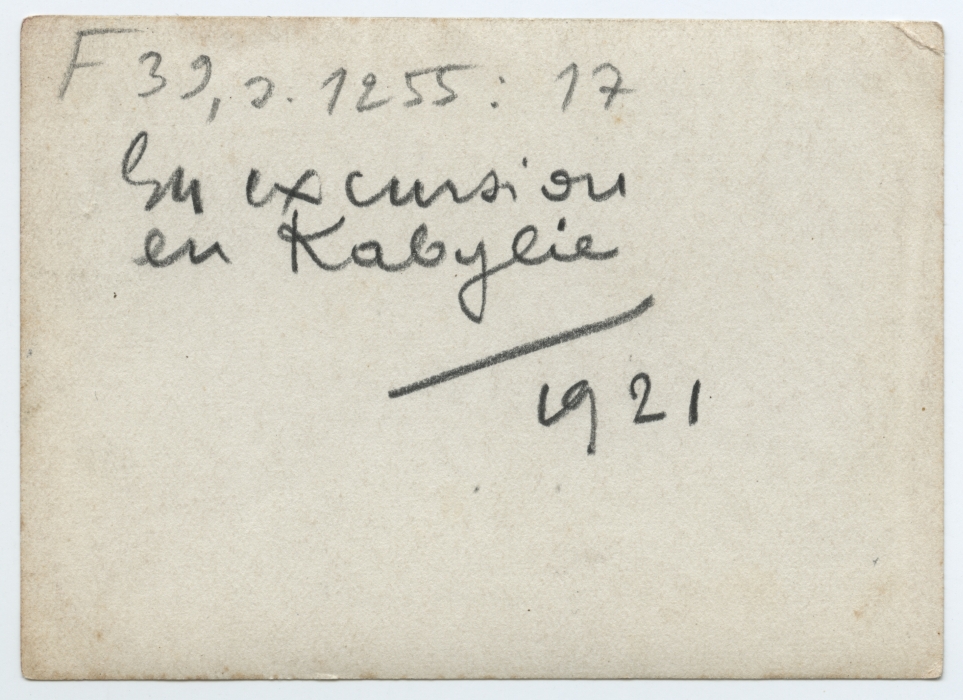 F 39, d. 1255: 17
En excursion
en Kabylie
1921